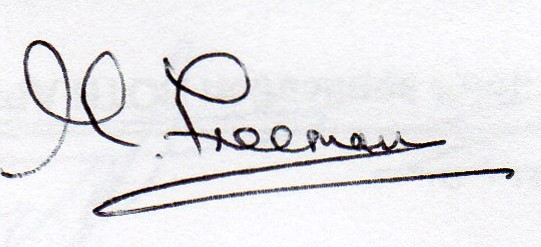 M. Freeman